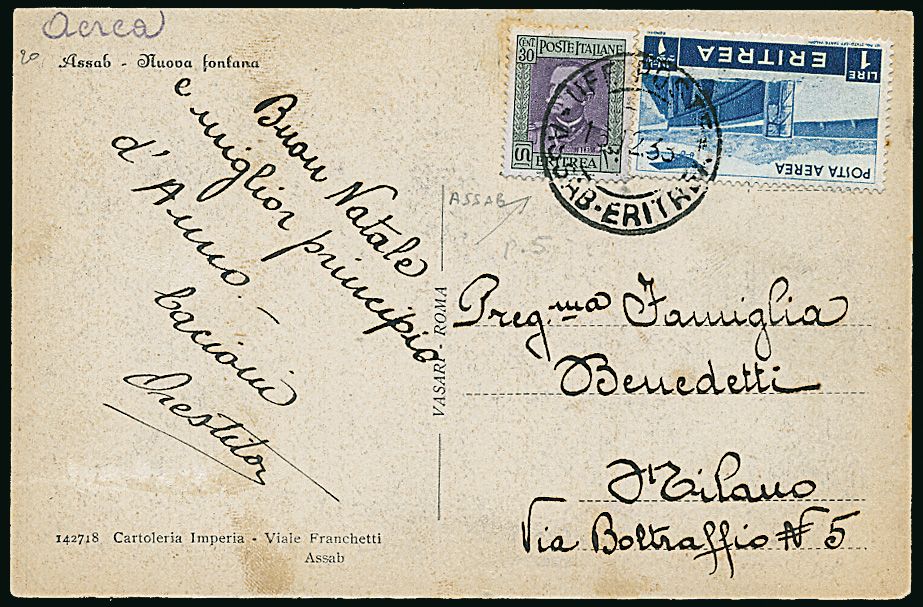 Aerea
20
Assab - Nuova fontana
Buon Natale
e miglior principio
d'Anno. -
bacioni
142718 Cartoleria Imperia - Viale Franchetti
Assab
VASARI - ROMA
CENT. 30
POSTE ITALIANE
ERITREA
LIRE 1
ERITREA
POSTA AEREA
ASSAB-ERITREA
ASSAB
p.5
Preg.ma Famiglia
Benedetti
Milano
Via Boltraffio N 5